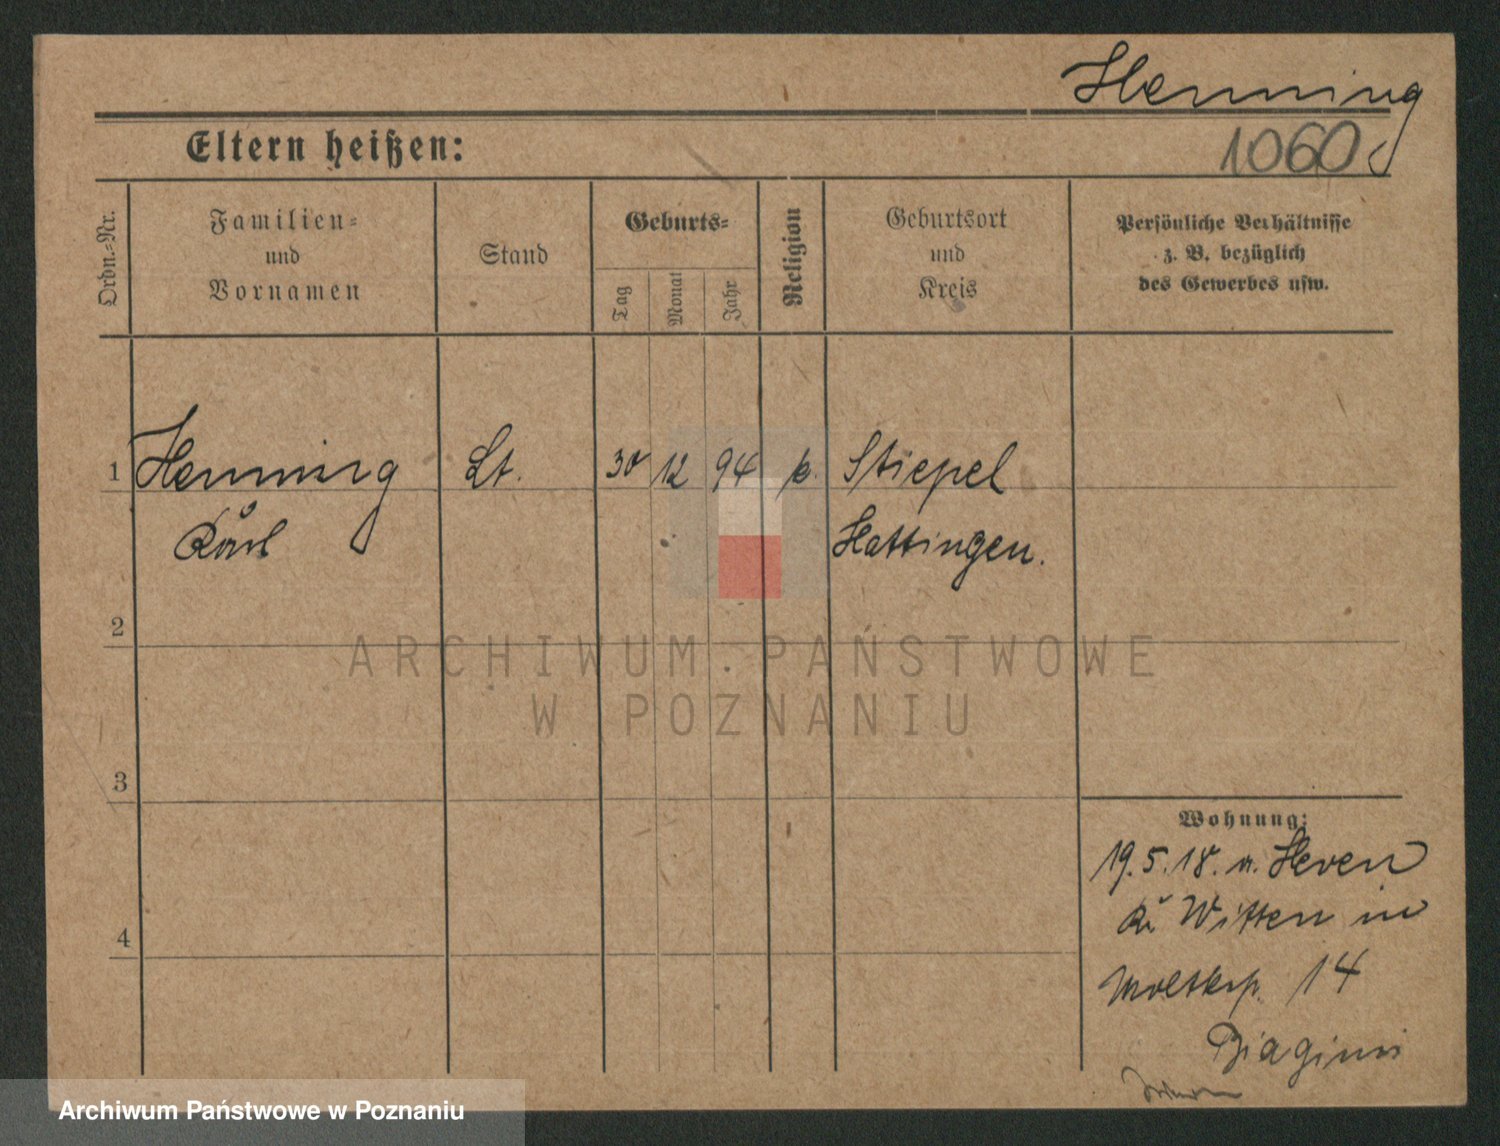 Henning
1060
Eltern heißen:
Ordn.-Nr.
Familien-
und
Vornamen
Stand
Geburts-
Tag
Monat
Jahr
Religion
Geburtsort
und
Kreis
Persönliche Verhältnisse
z. B. bezüglich
des Gewerbes usw.
1 Henning Lt. 30 12 94 Stiepel
Karl Hattingen.
2
ARCHIWUM PAŃSTWOWE
W POZNANIU
3
Wohnung:
19.5.18. n. Heven
Witten
4
14
Archiwum Państwowe w Poznaniu